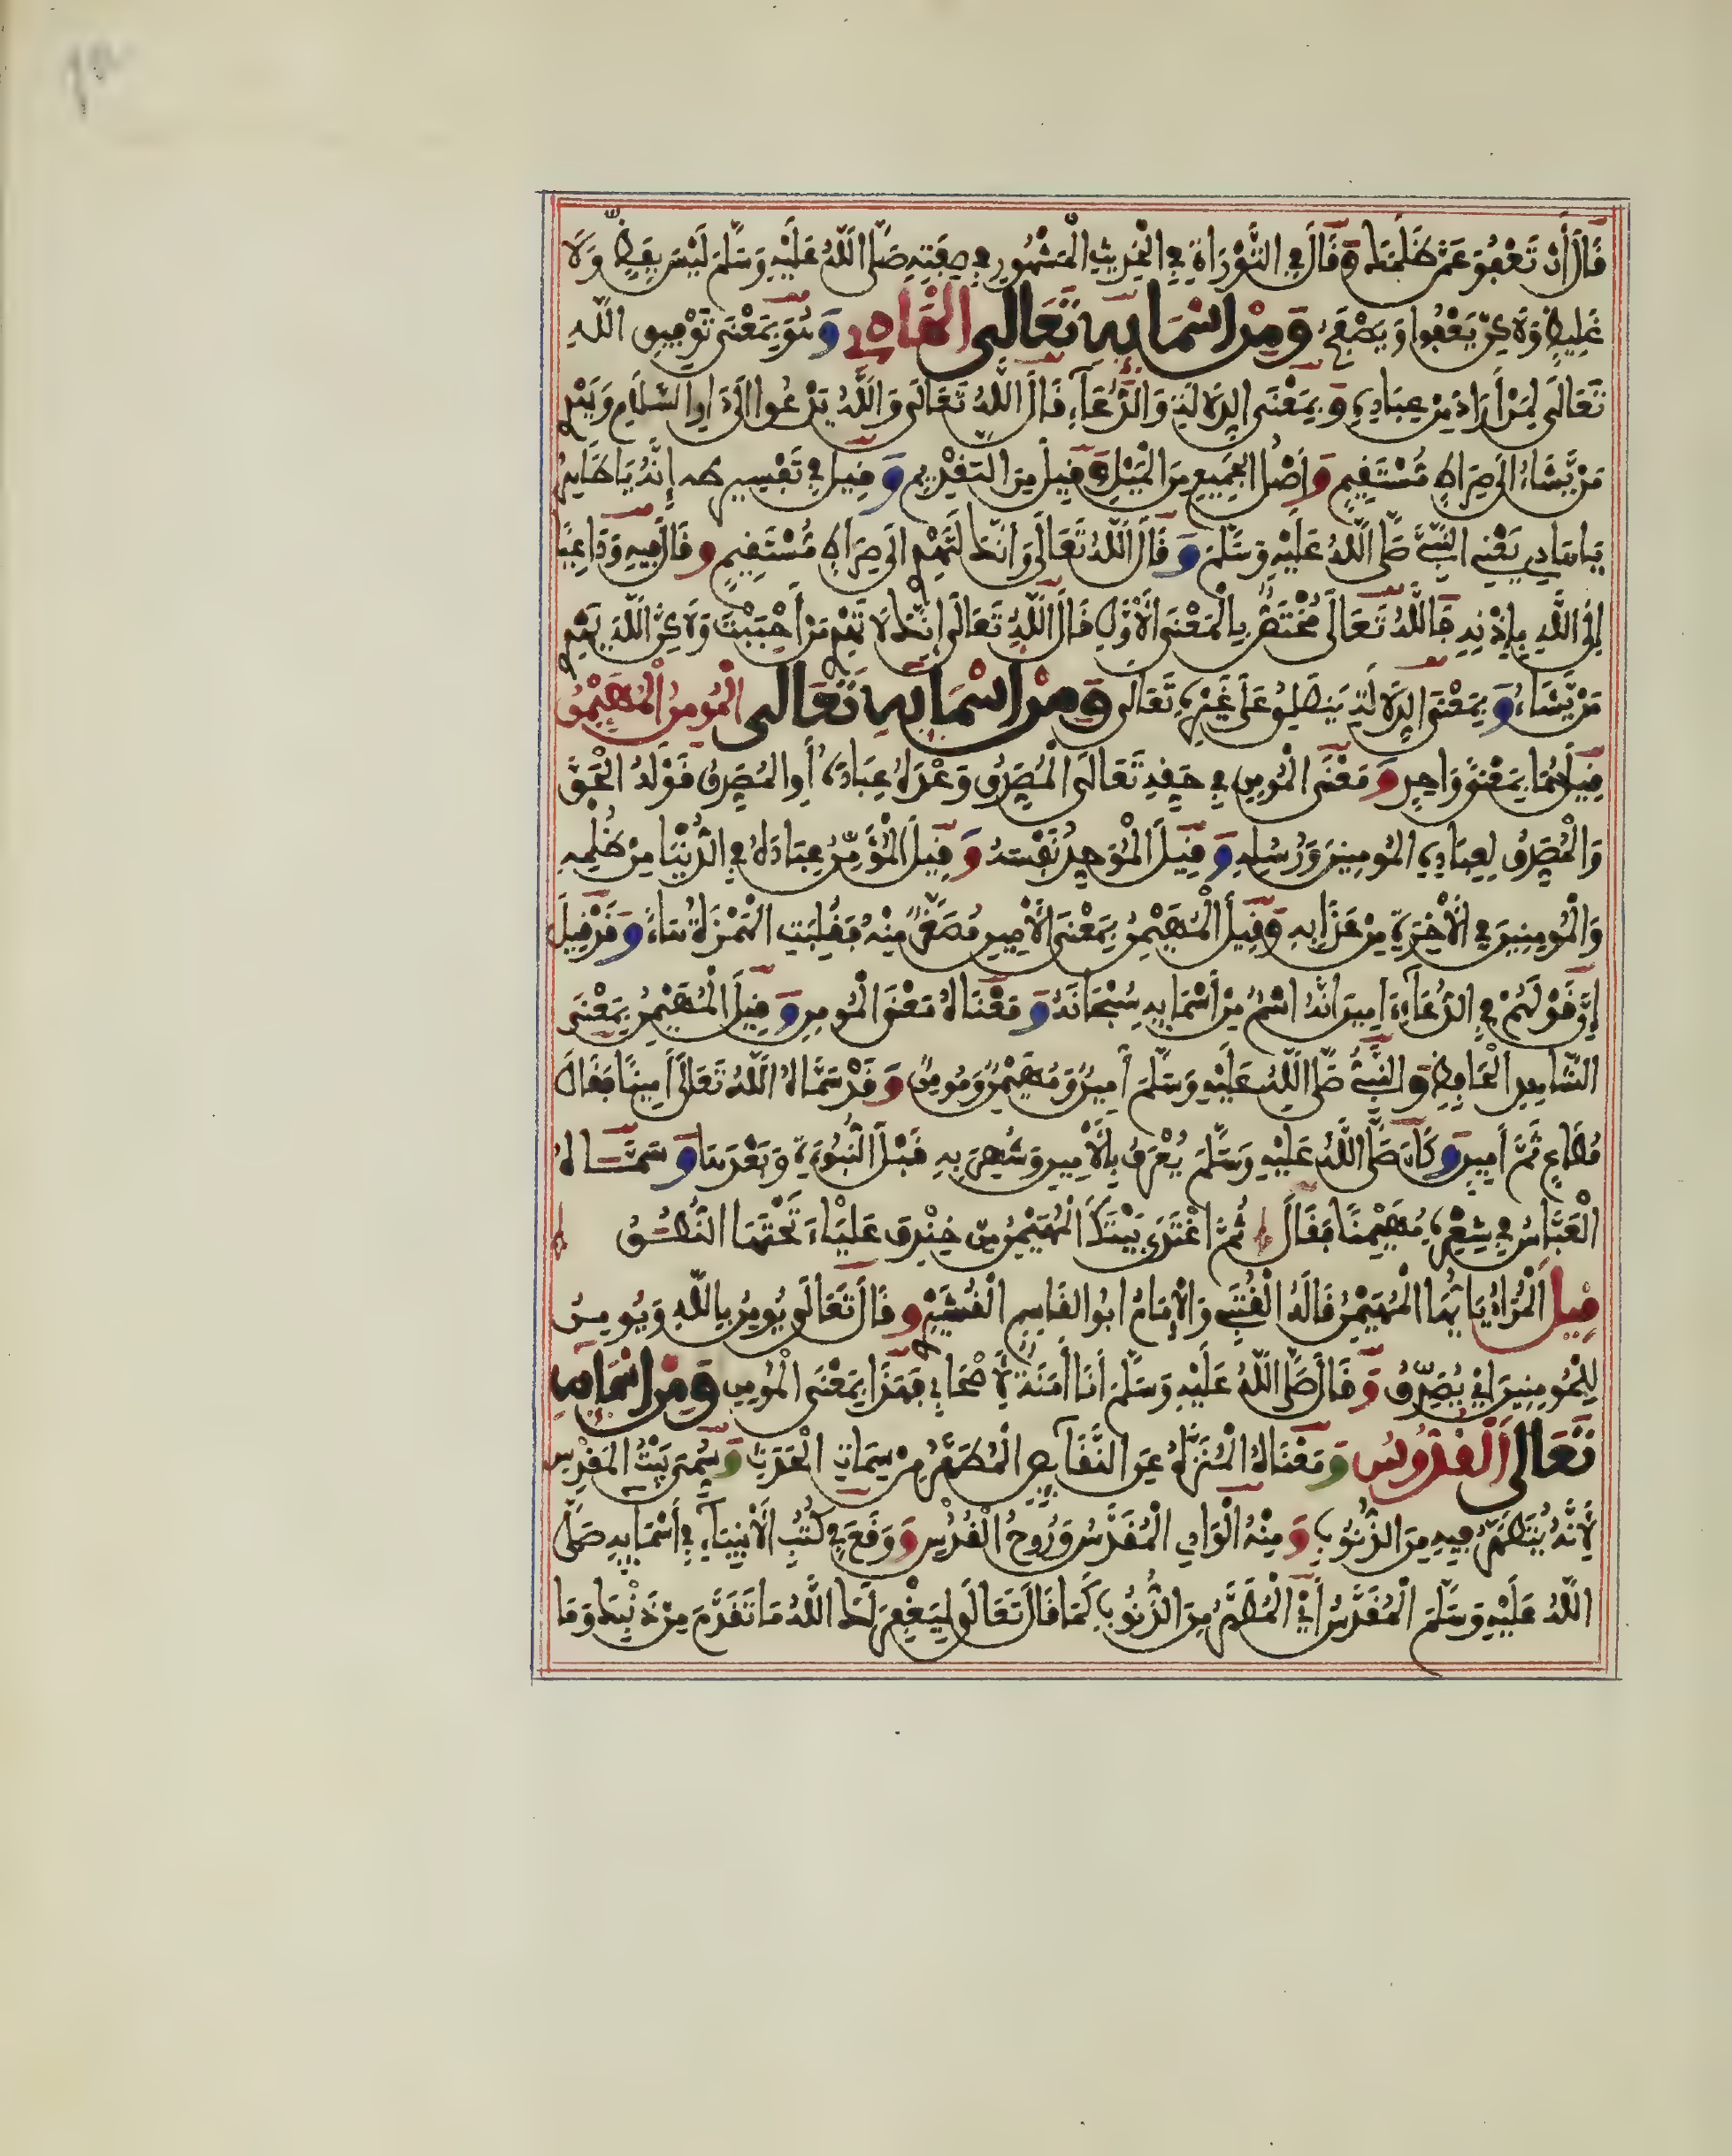 قَالَ أَنْ تَعْفُوَ عَمَّنْ ظَلَمَكَ وَقَالَ فِي التَّوْرَاةِ فِي الْحَدِيثِ الْمَشْهُورِ فِي صِفَتِهِ صَلَّى اللَّهُ عَلَيْهِ وَسَلَّمَ لَيْسَ بِفَظٍّ وَلَا
غَلِيظٍ وَلَاكِنْ يَعْفُوا وَيَصْفَحُ وَمِنْ اسْمَايِهِ تَعَالَى الْهَادِي وَهُوَ بِمَعْنَى تَوْفِيقِ اللَّهِ
تَعَالَى لِمَنْ أَرَادَ مِنْ عِبَادِهِ وَبِمَعْنَى الدِّلَالَةِ وَالدُّعَاءِ قَالَ اللَّهُ تَعَالَى وَاللَّهُ يَدْعُوا إِلَى دَارِ السَّلَامِ وَيَهْدِي
مَنْ يَّشَاءُ إِلَى صِرَاطٍ مُسْتَقِيمٍ وَأَصْلُ الْجَمِيعِ مِنَ الْمَيْلِ وَقِيلَ مِنَ التَّقْدِيمِ وَقِيلَ فِي تَفْسِيرِ طه إِنَّهُ يَا طَاهِرُ
يَا هَادِي يَعْنِي النَّبِيَّ صَلَّى اللَّهُ عَلَيْهِ وَسَلَّمَ وَقَالَ اللَّهُ تَعَالَى وَإِنَّكَ لَتَهْدِي إِلَى صِرَاطٍ مُسْتَقِيمٍ وَقَالَ فِيهِ وَدَاعِيًا
إِلَى اللَّهِ بِإِذْنِهِ فَاللَّهُ تَعَالَى مُخْتَصٌّ بِالْمَعْنَى الْأَوَّلِ قَالَ اللَّهُ تَعَالَى إِنَّكَ لَا تَهْدِي مَنْ أَحْبَبْتَ وَلَاكِنَّ اللَّهَ يَهْدِي
مَنْ يَّشَاءُ وَبِمَعْنَى الدِّلَالَةِ يَنْطَلِقُ عَلَى غَيْرِهِ تَعَالَى وَمِنْ اسْمَايِهِ تَعَالَى الْمُومِنُ الْمُهَيْمِنُ
قِيلَ هُمَا بِمَعْنًى وَاحِدٍ وَمَعْنَى الْمُومِنِ فِي حَقِّهِ تَعَالَى الْمُصَدِّقُ وَعْدَهُ عِبَادَهُ أَوِ الْمُصَدِّقُ قَوْلَهُ الْحَقَّ
وَالْمُصَدِّقُ لِعِبَادِهِ الْمُومِنِينَ وَرُسُلِهِ وَقِيلَ الْمُوَحِّدُ نَفْسَهُ وَقِيلَ الْمُؤَمِّنُ عِبَادَهُ فِي الدُّنْيَا مِنْ ظُلْمِهِ
وَالْمُومِنِينَ فِي الْآخِرَةِ مِنْ عَذَابِهِ وَقِيلَ الْمُهَيْمِنُ بِمَعْنَى الْأَمِينِ مُصَغَّرٌ مِنْهُ فَقُلِبَتِ الْهَمْزَةُ هَاءً وَقَدْ قِيلَ
إِنَّ قَوْلَهُمْ فِي الدُّعَاءِ ءَامِينَ أَنَّهُ اسْمٌ مِنْ أَسْمَايِهِ سُبْحَانَهُ وَمَعْنَاهُ مَعْنَى الْمُومِنِ وَقِيلَ الْمُهَيْمِنُ بِمَعْنَى
الشَّاهِدِ الْحَافِظِ وَالنَّبِيُّ صَلَّى اللَّهُ عَلَيْهِ وَسَلَّمَ أَمِينٌ وَمُهَيْمِنٌ وَمُومِنٌ وَقَدْ سَمَّاهُ اللَّهُ تَعَالَى أَمِينًا فَقَالَ
مُطَاعٍ ثَمَّ أَمِينٍ وَكَانَ صَلَّى اللَّهُ عَلَيْهِ وَسَلَّمَ يُعْرَفُ بِالْأَمِينِ وَشُهِرَ بِهِ قَبْلَ النُّبُوَّةِ وَبَعْدَهَا وَسَمَّاهُ
الْعَبَّاسُ فِي شِعْرِهِ مُهَيْمِنًا فَقَالَ ثُمَّ اغْتَدَى بَيْتُكَ الْمُهَيْمِنُ مِنْ خِنْدِفَ عَلْيَاءَ تَحْتَهَا النُّطُقُ
قِيلَ الْمُرَادُ يَا أَيُّهَا الْمُهَيْمِنُ قَالَهُ الْقُتَبِيُّ وَالْإِمَامُ أَبُو الْقَاسِمِ الْقُشَيْرِيُّ وَقَالَ تَعَالَى يُومِنُ بِاللَّهِ وَيُومِنُ
لِلْمُومِنِينَ أَيْ يُصَدِّقُ وَقَالَ صَلَّى اللَّهُ عَلَيْهِ وَسَلَّمَ أَنَا أَمَنَةٌ لِأَصْحَابِي فَهَذَا بِمَعْنَى الْمُومِنِ وَمِنْ اسْمَايِهِ
تَعَالَى الْقُدُّوسُ وَمَعْنَاهُ الْمُنَزَّهُ عَنِ النَّقَائِصِ الْمُطَهَّرُ مِنْ سِمَاتِ الْحَدَثِ وَسُمِّيَ بَيْتُ الْمَقْدِسِ
لِأَنَّهُ يُتَطَهَّرُ فِيهِ مِنَ الذُّنُوبِ وَمِنْهُ الْوَادِي الْمُقَدَّسُ وَرُوحُ الْقُدُسِ وَوَقَعَ فِي كُتُبِ الْأَنْبِيَاءِ فِي أَسْمَايِهِ صَلَّى
اللَّهُ عَلَيْهِ وَسَلَّمَ الْمُقَدَّسُ أَيِ الْمُطَهَّرُ مِنَ الذُّنُوبِ كَمَا قَالَ تَعَالَى لِيَغْفِرَ لَكَ اللَّهُ مَا تَقَدَّمَ مِنْ ذَنْبِكَ وَمَا